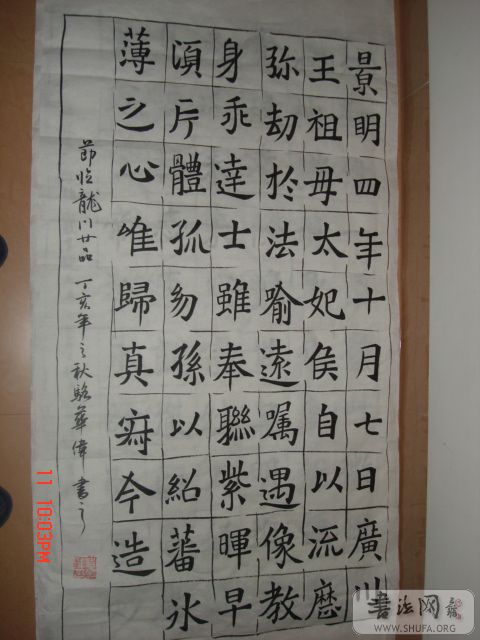 景明四年十月七日廣川
王祖母太妃侯自以流歷
弥劫於法喻遠嘱遇像教
身乖達士雖奉聯紫暉早
湏片體孤幼孫以紹蕃氷
薄之心唯歸真寂今造
節临龍门廿品 丁亥年之秋駱華偉書之
11 10:03PM
書法网
WWW.SHUFA.ORG